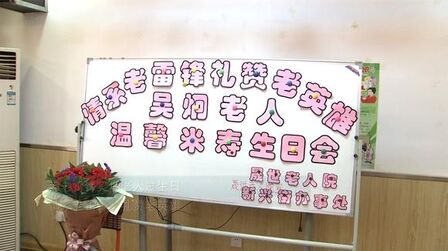 情系老雷锋礼赞老英雄
吴炯老人
温馨米寿生日会
晟世老人院
新兴街办事处